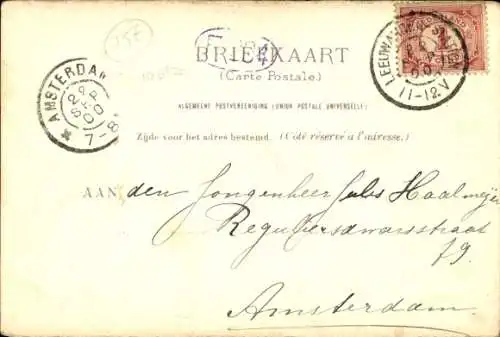 BRIEFKAART
(Carte Postale.)
ALGEMEENE POSTVEREENIGING (UNION POSTALE UNIVERSELLE)
Zijde voor het adres bestemd. (Côté réservé à l'adresse.)
AMSTERDAM
7-8
LEEUWARDEN
11-12V
AAN den Jongenheer Jules Haalmeijer
Reguliersdwarsstraat
79.
Amsterdam.